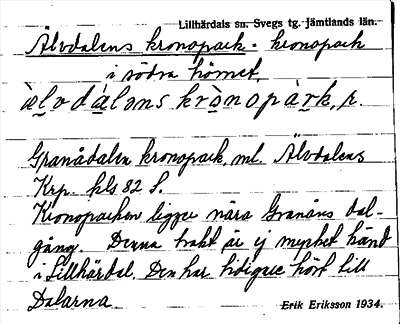 Lillhärdals sn. Svegs tg. Jämtlands län.
Älvdalens kronopark - kronopark
i södra hörnet.
älvdálens krònopàrk, r.
Granådalen kronopark, ml. Älvdalens
Krp. kls 82 S.
Kronoparken ligger nära Granåns dal-
gång. Denna trakt är ej mycket känd
i Lillhärdal. Den har tidigare hört till
Dalarna.
Erik Eriksson 1934.